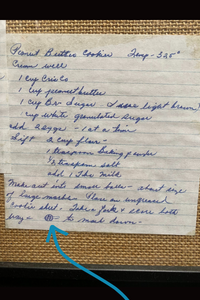 Peanut Butter Cookies Temp - 325°
Cream well
1 cup Crisco
1 cup peanut butter
1 cup Br. Sugar I use light brown
cup white granulated sugar
add 2 eggs - 1 at a time
Sift 2 cup flour
1 teaspoon baking powder
teaspoon salt
add 1 Tbs Milk
Make out into small balls - about size
of large marble. Place on ungreased
cookie sheet. Take a fork & score both
ways to mash down.